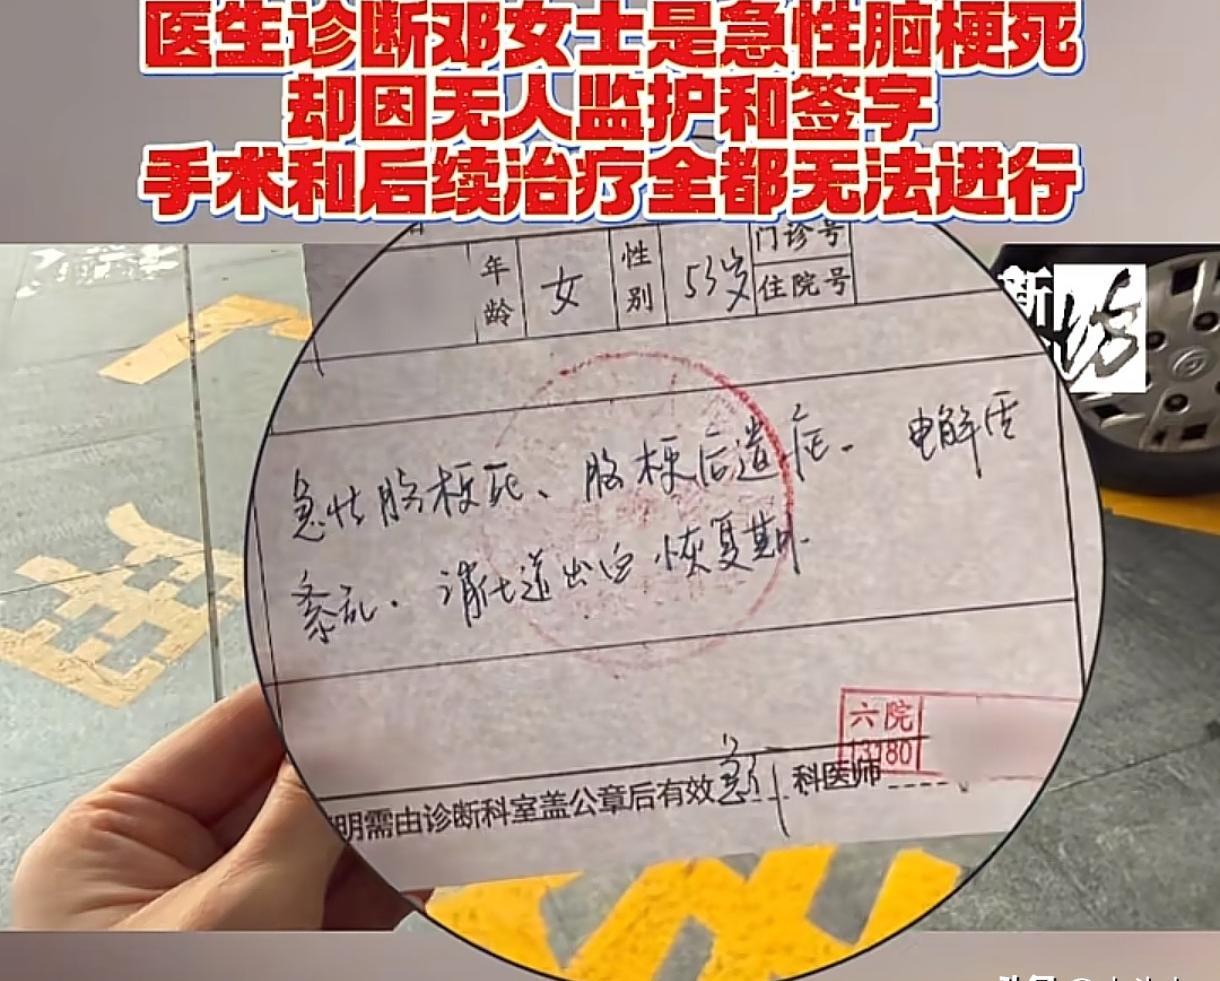 医生诊断邓女士是急性脑梗死
却因无人监护和签字
手术和后续治疗全都无法进行
年龄 女 性别 53岁 门诊号
住院号
新
急性脑梗死、脑梗后遗症. 电解质
紊乱. 消化道出血 恢复期.
六院
13180
明需由诊断科室盖公章后有效 急门 科医师